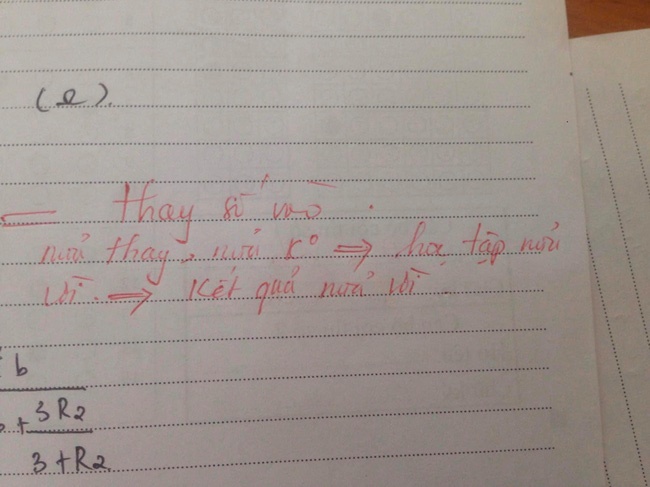 (Ω).
thay số vào.
nửa thay, nửa k° ⇒ học tập nửa
vời. ⇒ Kết quả nửa vời
6
+ 3R2
3 + R2